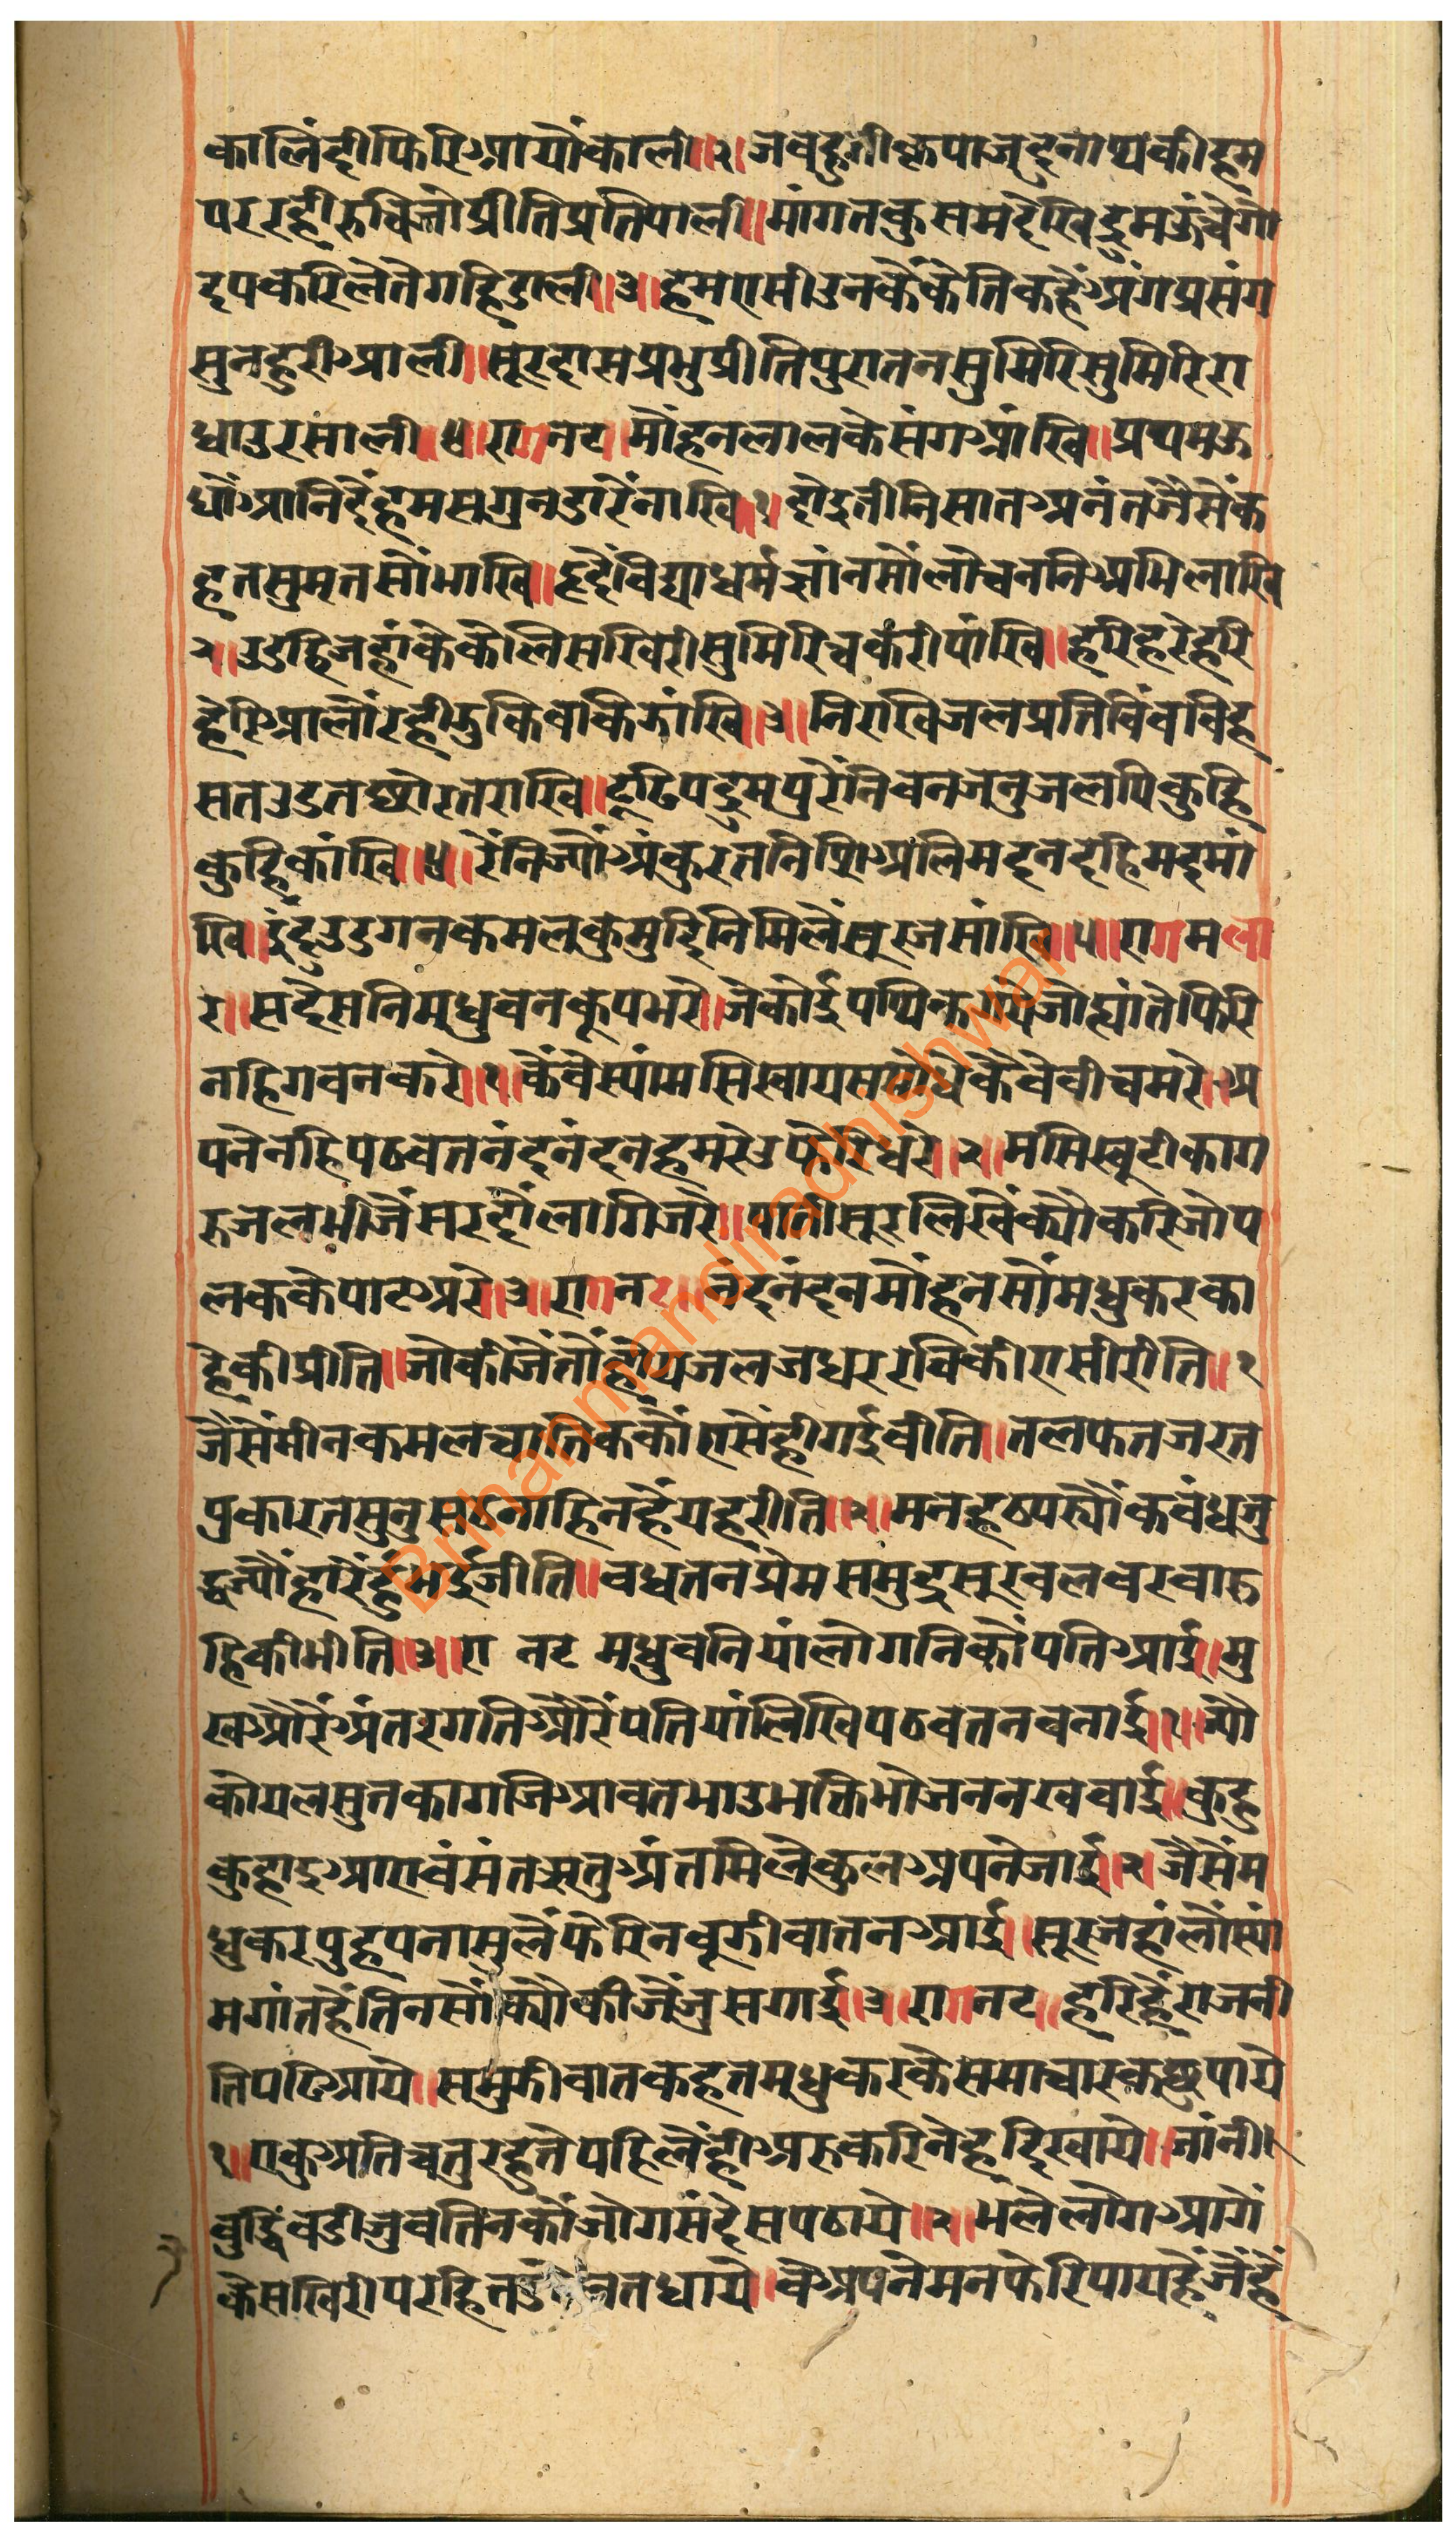 कालिंदीफिरिआयौंकाली॥२॥जबहुतीकृपाजदुनाथकीहम
पररहीरुचिजोप्रीतिप्रतिपाली॥मांगतकुसमदेखिद्रुमऊंचेगो
दपकरिलेतेगहिडाली॥३॥हमएसीउनकैंकेतिकहैंअंगप्रसंग
सुनहुरीआली॥सूरदासप्रभुप्रीतिपुरातनसुमिरिसुमिरिरा
धाउरसाली॥४॥रागनट॥मौंहनलालकेसंगआंखि॥प्रथमऊ
धौंआनिदैहमसगुनडारेंनाखि॥१॥दोइतीनिसातअनंतजैसेंक
हतसुमृतसौंभाखि॥हृदैंविद्याधर्मज्ञांनसौंलोचननिअभिलाखि
२॥उडठिजहांकेकेलिसखिरीसुमिरिचकरीपांखि॥हरिहरेहरि
हेरिआलौंरहीझुकिबकिझांखि॥३॥निरखिजलप्रतिबिंबबिह
सतउडतछोरतराखि॥टूटिपदुमपुरेंनिबनजनुजलपिकुहि
कुहिकांखि॥४॥रेंनिज्यौंअंकुरतनिशिअलिमदनदहिमदमां
खि॥इंदुउडगनकमलकुमुदिनिमिलैंसूरजसांखि॥५॥रागमला
र॥सदेसनिमधुवनकूपभरे॥जेकोईपथिकगयेजोह्यांतेफिरि
नहिगवनकरे॥१॥कैंवेस्यांमसिखायसमोधेकैवेबीचमरे॥अ
पनेनहिपठवतनंदनंदनहमरेउफेरिधरे॥२॥मसिखूटीकाग
रुजलभीजैंसरदौंलागिजरे॥पातीसूरलिखैंक्यौकरिजोप
लककेपाटअरे॥३॥रागनट॥नंदनंदनमौंहनसौंमधुकरका
हेकीप्रीति॥जोकीजैंतौंहोयजलजधररविकीएसीरीति॥१
जैसेंमीनकमलचातिककौंएसेंहीगईबीति॥तलफतजरत
पुकारतसुनुसठनाहिनहैंयहरीति॥२॥मनहठपर्यौंकबंधजु
द्धज्यौंहारेंहुंभईजीति॥बधतनप्रेमसमुद्रसूरबलबरबारु
हिकीभीति॥३॥रा नट मधुबनियांलोगनिकोंपतिआई॥मु
खऔरेंअंतरगतिऔरेंपतियांलिखिपठवतनबनाई॥१॥ज्यौ
कोयलसुतकागजिआवतभाउभक्तिभोजननखवाई॥कुहु
कुहाइआएबंसंतऋतुअंतमिलेकुलअपनेजाई॥२॥जैसेंम
धुकरपुहपनासुलैंफेरिनबूझीबातनआई॥सूरजहांलौंस्यां
मगांतहैंतिनसौंक्यौकीजैंजुसगाई॥३॥रागनट॥हरिहैंराजनी
तिपढिआये॥समुझीबातकहतमधुकरकेसमाचारकछुपाये
१॥एकुअतिचतुरहुतेपहिलेंहीअरुकरिनेहदिखाये॥जांनी
बुद्धिंबडीजुवतिनकौंजोगसंदेसपठाये॥२॥भलेलोगआगें
केसखिरीपरहित धाये॥वेअपनेमनफेरिपायहैंजेंहैं